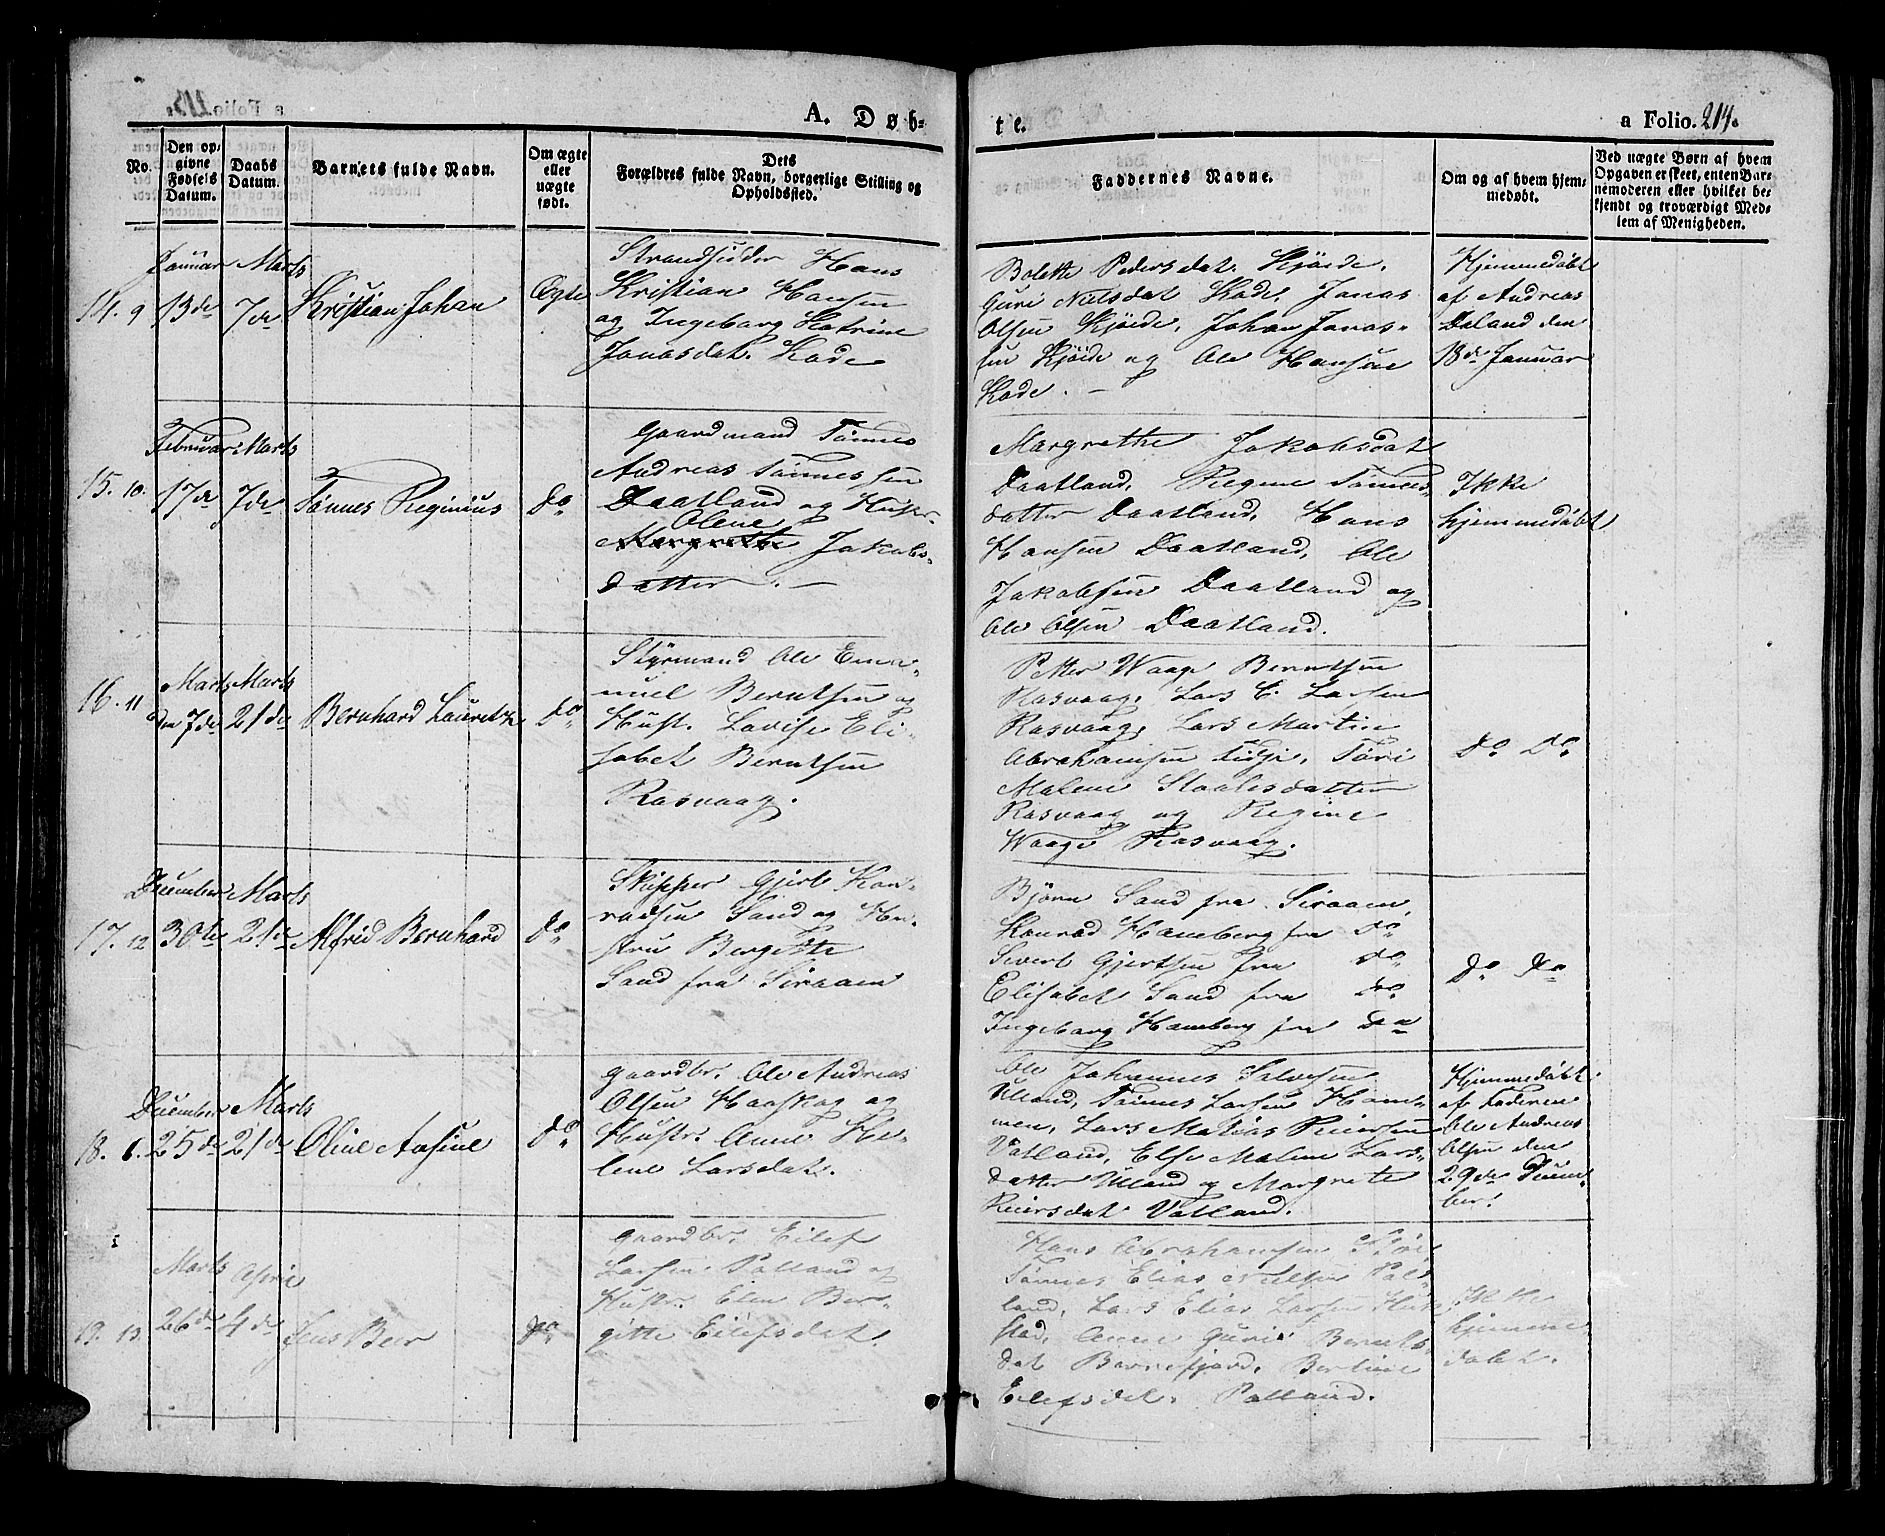 A. Døb-
te.
a Folio. 214.
No.
Den op-
givne
Fødsels
Datum.
Daabs
Datum.
Barnets fulde Navn.
Om ægte
eller
uægte
født.
Dets
Forældres fulde Navn, borgerlige Stilling og
Opholdssted.
Faddernes Navne.
Om og af hvem hjem-
medøbt.
Ved uægte Børn af hvem
Opgaven er skeet, enten Bar-
nemoderen eller hvilket be-
kjendt og troværdigt Med-
lem af Menigheden.
14. 9
Januar
13de
Marts
7de
Kristian Johan
Ægte
Strandsidder Hans
Kristian Hansen
og Ingeborg Katrine
Jonasdat. Kade
Bolette Pedersdat. Kjøide.
Guri Nielsdat Kade, Jonas
Olsen Kjøide, Johan Jonas-
sen Kjøide og Ole Hansen
Kade. —
Hjemmedøbt
af Andreas
Daland den
18de Januar
15. 10.
Februar
17de
Marts
7de
Tønnes Reginius
Do
Gaardmand Tønnes
Andreas Tønnessen
Daatland og Hustr.
Olene
Margrethe Jakobs-
datter. —
Margrethe Jakobsdat
Daatland, Regine Tønnes-
datter Daatland, Hans
Hansen Daatland, Ole
Jakobsen Daatland og
Ole Olsen Daatland.
Ikke
hjemmedøbt
16. 11
Marts
den 7de
Marts
21de
Bernhard Lauretz
Do.
Styrmand Ole Ema-
nuel Berntsen og
Hust. Lovise Eli-
sabet Berntsen
Rasvaag.
Petter Waage Berntsen
Rasvaag, Lars C. Larsen
Rasvaag, Lars Martin
Abrahamsen Tori
Malene Staalesdatter
Rasvaag og Regine
Waage Rasvaag.
Do Do
17. 12
December
30te
Marts
21de
Alfrid Bernhard
Do
Skipper Gjert Kon-
radsen Sand og Hu-
stru Bergitte
Sand fra Siraaen
Bjørn Sand fra Siraaen,
Konrad Haneberg fra Do
Sivert Gjertsen fra Do
Elisabet Sand fra Do
Ingeborg Haneberg fra Do
Do Do
18. 6.
December
25de
Marts
21de
Oline Aasine
Do
Gaardbr. Ole Andreas
Olsen Haaskag og
Hustr. Anne He-
lene Larsdat.
Ole Johannes Salvesen
Ulland, Tønnes Larsen Ham-
men, Lars Matias Reiersen
Vatland, Else Malene Lars-
datter Ulland og Margrete
Reiersdat. Vatland.
Hjemmedøbt
af Faderen
Ole Andreas
Olsen den
29de Decem-
ber.
19. 13.
Marts
26de
April
4de
Jens Beer
Do
Gaardbr. Eilef
Larsen Palland og
Hustr. Elen Ber-
gitte Eilefsdat.
Hans Abrahamsen
Tønnes Elias Nielsen Pal-
land, Lars Elias Larsen
stad, Anne Guri Berents-
dat Berrefjord, Bertine
Eilefsdat. Palland.
Ikke
hjemme-
døbt.